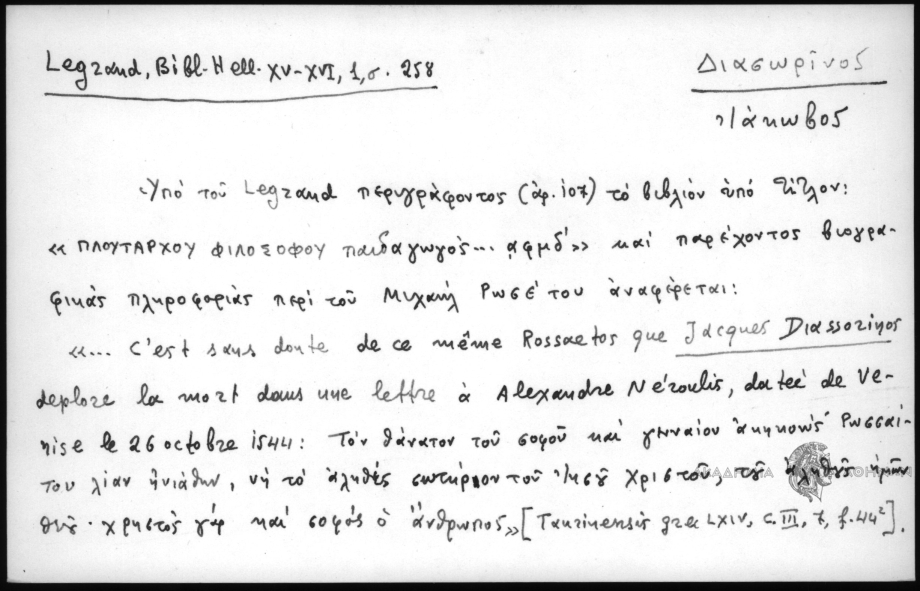 Legrand, Bibl. Hell. XV-XVI, 1, σ. 258
Διασωρῖνος
Ἰάκωβος
Ὑπό τοῦ Legrand περιγράφοντος (ἀρ. 107) τό βιβλίον ὑπό τίτλον:
« ΠΛΟΥΤΑΡΧΟΥ ΦΙΛΟΣΟΦΟΥ παιδαγωγός... ͵αφμδ´» καί παρέχοντος βιογρα-
φικάς πληροφορίας περί τοῦ Μιχαήλ Ρωσέτου ἀναφέρεται:
«... C'est sans doute de ce même Rossaetos que Jacques Diassorinos
deplore la mort dans une lettre à Alexandre Néroulis, dateé de Ve-
nise le 26 octobre 1544: Τόν θάνατον τοῦ σοφοῦ καί γενναίου ἀκηκοώς Ρωσσαί-
του λίαν ἠνιάθην, νή τό ἀληθές σωτήριον τοῦ Ἰησοῦ Χριστοῦ, τοῦ ἀληθοῦς ἡμῶν
θεοῦ· χρηστός γάρ καί σοφός ὁ ἄνθρωπος» [Taurinensis grec LXIV, c. III, 7, f. 44²].
ΑΚΑΔΗΜΙΑ ΑΘΗΝΩΝ